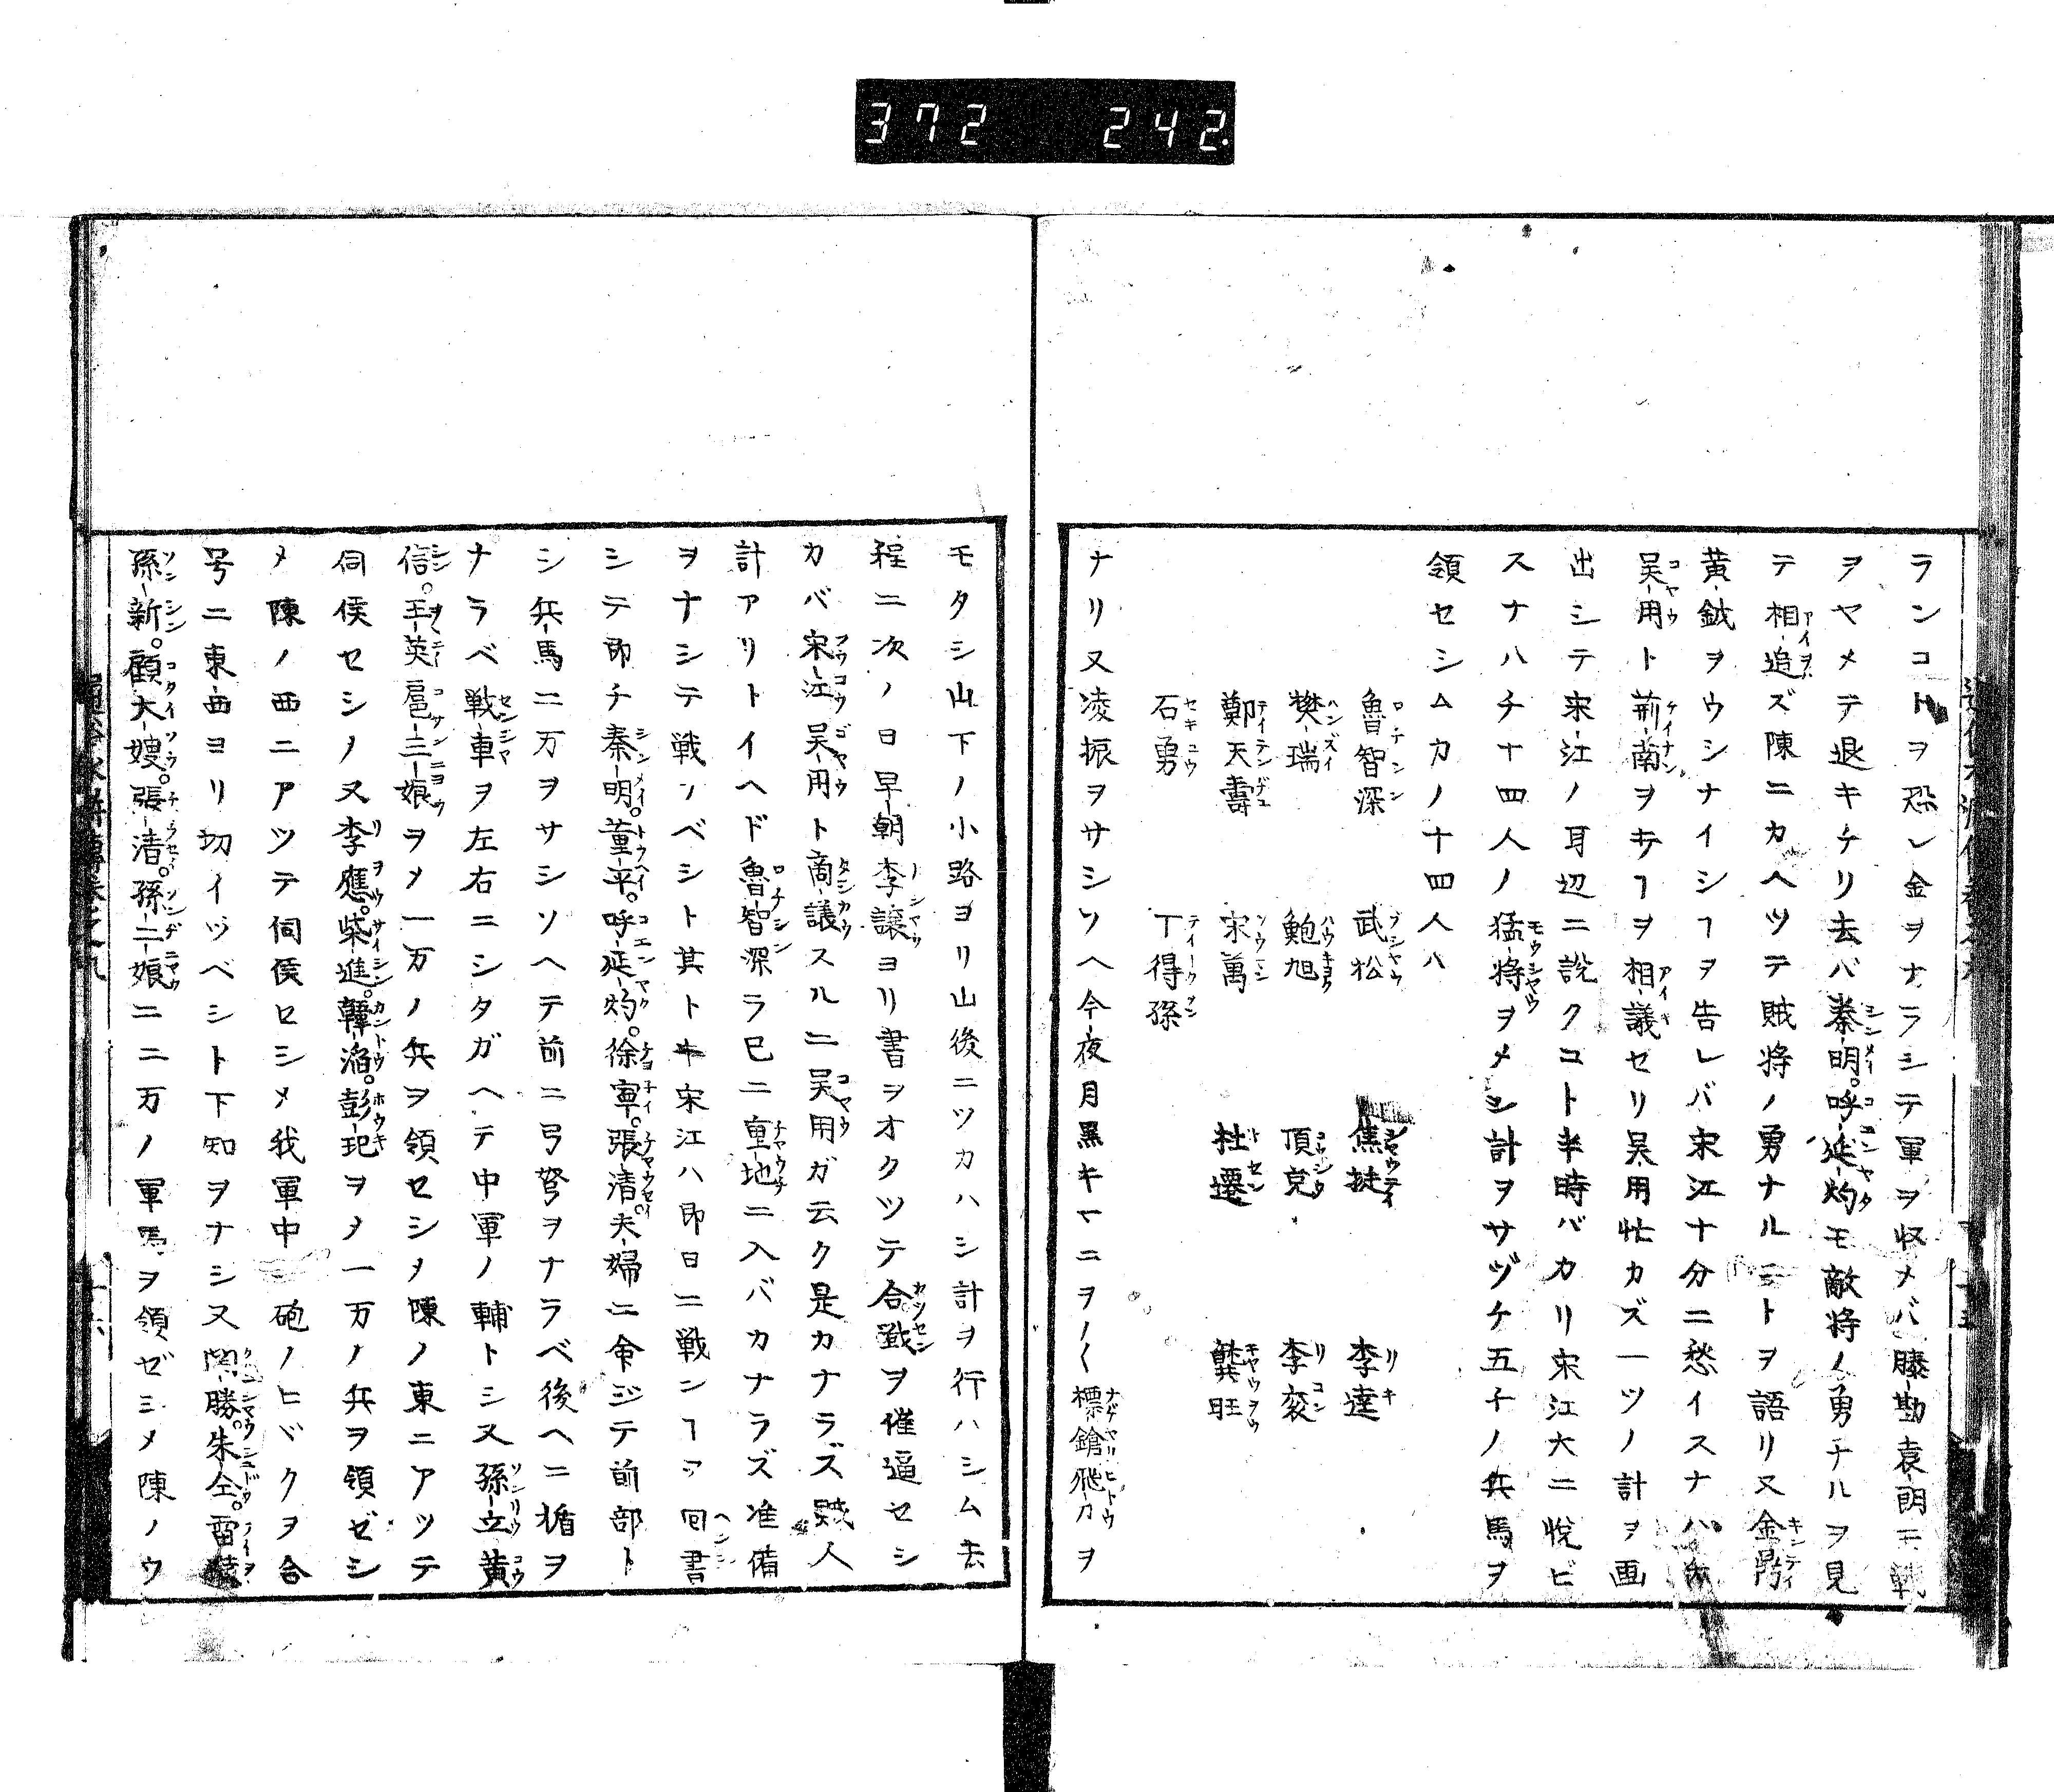 372 242
ランコトヲ恐レ金ヲナラシテ軍ヲ収メバ滕勘袁朗モ戦
ヲヤメテ退キケリ去バ秦明。呼延灼モ敵将ノ勇ナルヲ見
テ相追ズ陳ニカヘツテ賊将ノ勇ナルコトヲ語リ又金鼎
黄鉞ヲウシナイシヿヲ告レバ宋江十分ニ愁イスナハ
呉用ト荊南ヲキヿヲ相議セリ呉用忙カズ一ツノ計ヲ画
出シテ宋江ノ耳辺ニ説クコト半時バカリ宋江大ニ悦ビ
スナハチ十四人ノ猛将ヲメシ計ヲサヅケ五千ノ兵馬ヲ
領セシムカノ十四人ハ
魯智深 武松 焦挺 李逵
樊瑞 鮑旭 項充 李袞
鄭天壽 宋萬 杜遷 龔旺
石勇 丁得孫
ナリ又凌振ヲサシソヘ今夜月黒キマニヲノ〱標鎗飛刀ヲ
モタシ山下ノ小路ヨリ山後ニツカハシ計ヲ行ハシム去
程ニ次ノ日早朝李讓ヨリ書ヲオクツテ合戰ヲ催逼セシ
カバ宋江呉用ト商議スルニ呉用ガ云ク是カナラズ賊人
計アリトイヘド魯智深ラ已ニ重地ニ入バカナラズ准備
ヲナシテ戦ンベシト其トキ宋江ハ即日ニ戦ンヿヲ回書
シテ即チ秦明。董平。呼延灼。徐寧。張清夫婦ニ命ジテ前部ト
シ兵馬二万ヲサシソヘテ前ニ弓弩ヲナラベ後ヘニ楯ヲ
ナラベ戦車ヲ左右ニシタガヘテ中軍ノ輔トシ又孫立黄
信。王英扈三娘ヲメ一万ノ兵ヲ領セシメ陳ノ東ニアツテ
伺侯セシメ又李應。柴進。韓滔。彭玘ヲメ一万ノ兵ヲ領ゼシ
メ陳ノ西ニアツテ伺侯セシメ我軍中砲ノヒヾクヲ合
号ニ東西ヨリ切イヅベシト下知ヲナシ又関勝。朱仝。雷横
孫新。顧大嫂。張清。孫二娘ニ二万ノ軍馬ヲ領ゼシメ陳ノウ